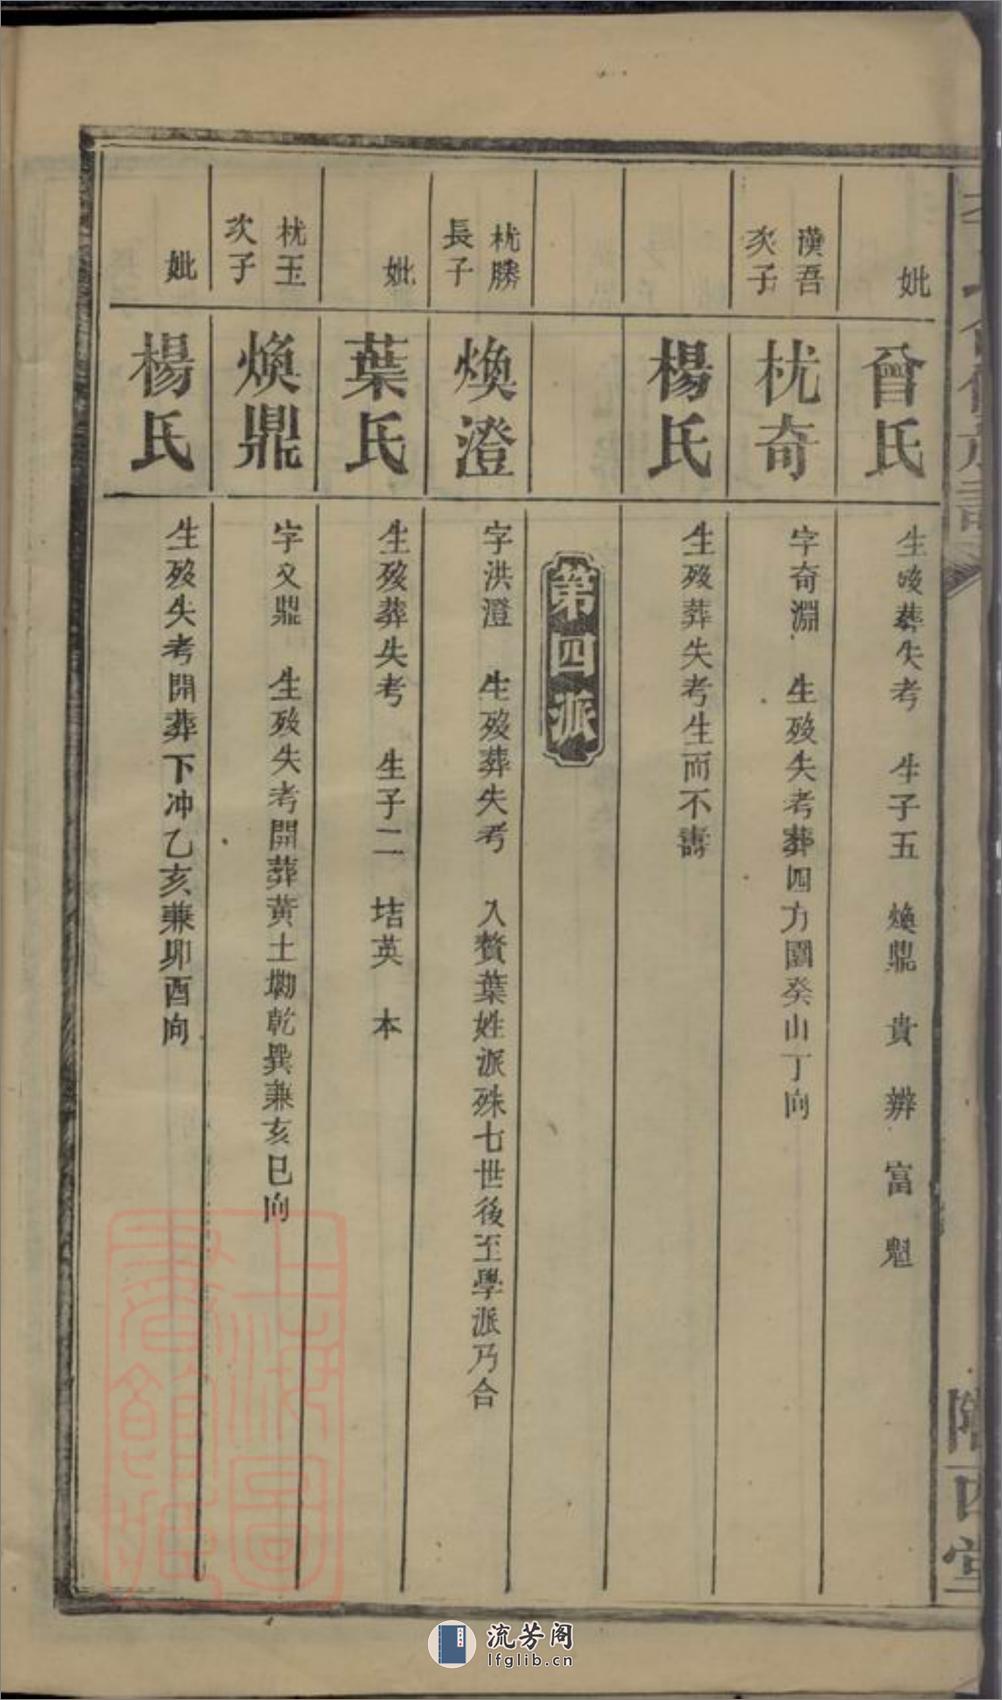 妣
曾氏
生歿葬失考 生子五 煥鼎 貴 辨 富 魁
漢吾
次子
枕奇
字奇淵 生歿失考葬四方園癸山丁向
楊氏
生歿葬失考生而不壽
第四派
枕勝
長子
煥澄
字洪澄 生歿葬失考 入贅葉姓派殊七世後至學派乃合
妣
葉氏
生歿葬失考 生子二 㙂英 本
枕玉
次子
煥鼎
字文鼎 生歿失考開葬黃土墈乾巽兼亥巳向
妣
楊氏
生歿失考開葬下冲乙亥兼卯酉向
隴西堂
上海圖
書館藏
流芳阁
lfglib.cn